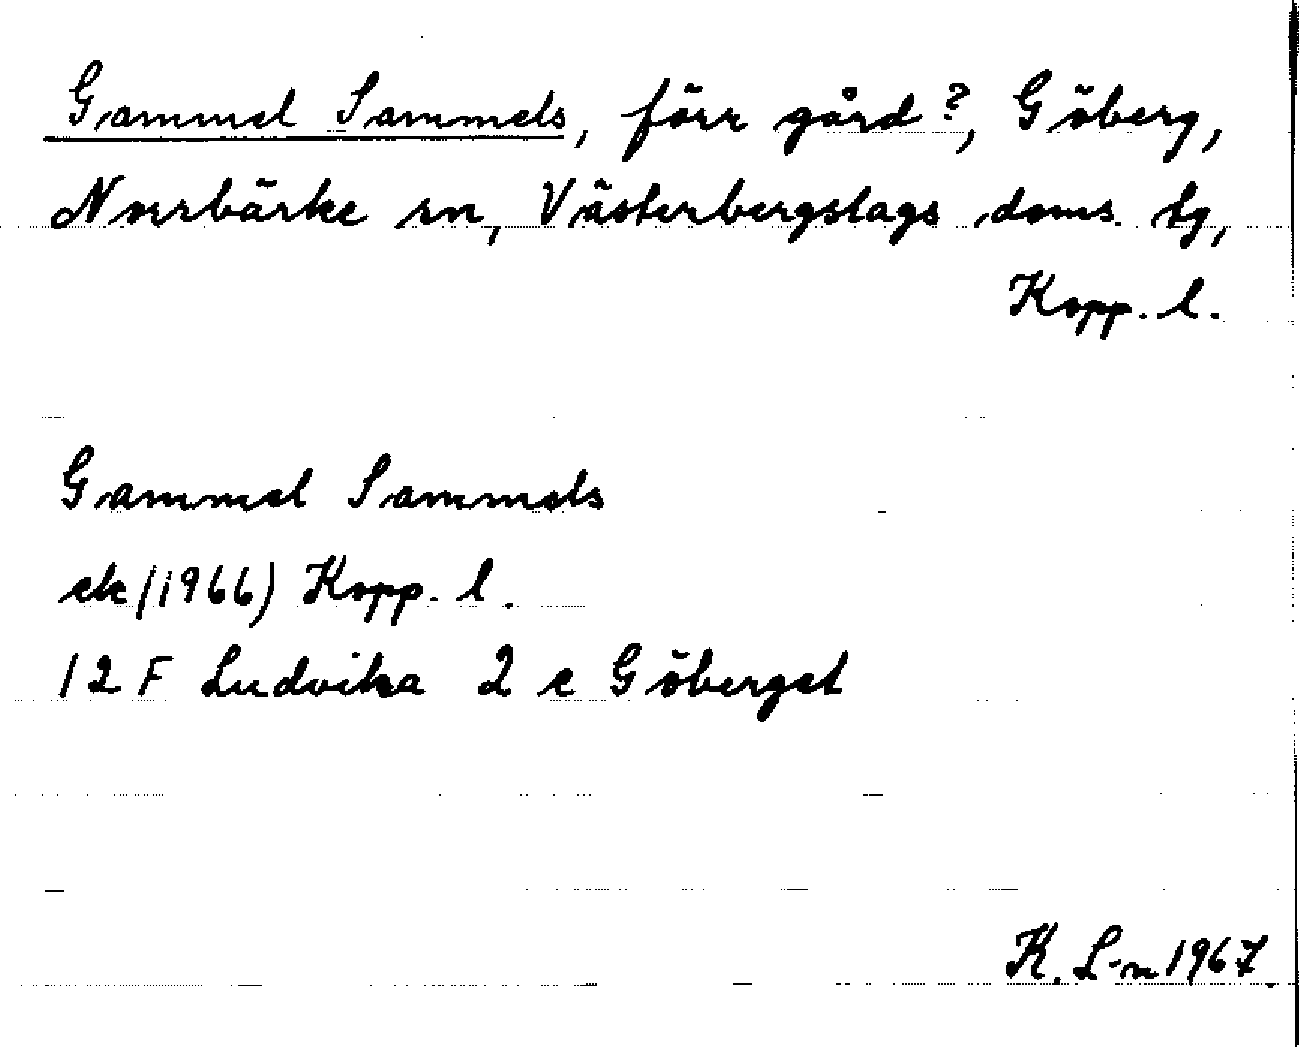 Gammel Sammels, förr gård?, Göberg,
Norrbärke sn, Västerbergslags doms. tg,
Kopp. l.
Gammel Sammels
ek (1966) Kopp. l.
12 F Ludvika 2 e Göberget
K. L-n 1967